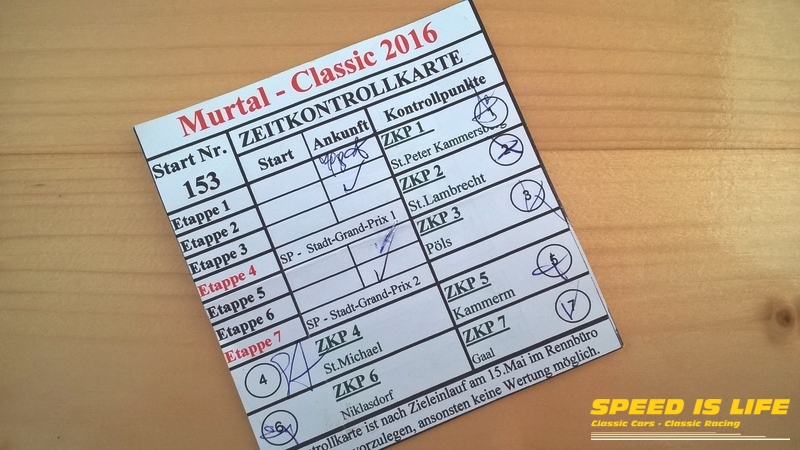 Murtal - Classic 2016
Start Nr.
153
ZEITKONTROLLKARTE
Start
Ankunft
Kontrollpunkte
Etappe 1
Etappe 2
Etappe 3
SP - Stadt-Grand-Prix 1
Etappe 4
Etappe 5
Etappe 6
SP - Stadt-Grand-Prix 2
Etappe 7
ZKP 1
St.Peter Kammersberg
1
ZKP 2
St.Lambrecht
2
ZKP 3
Pöls
3
4
ZKP 4
St.Michael
ZKP 5
Kammern
5
6
ZKP 6
Niklasdorf
ZKP 7
Gaal
7
ist nach Zieleinlauf am 15.Mai im Rennbüro
vorzulegen, ansonsten keine Wertung möglich.
SPEED IS LIFE
Classic Cars - Classic Racing